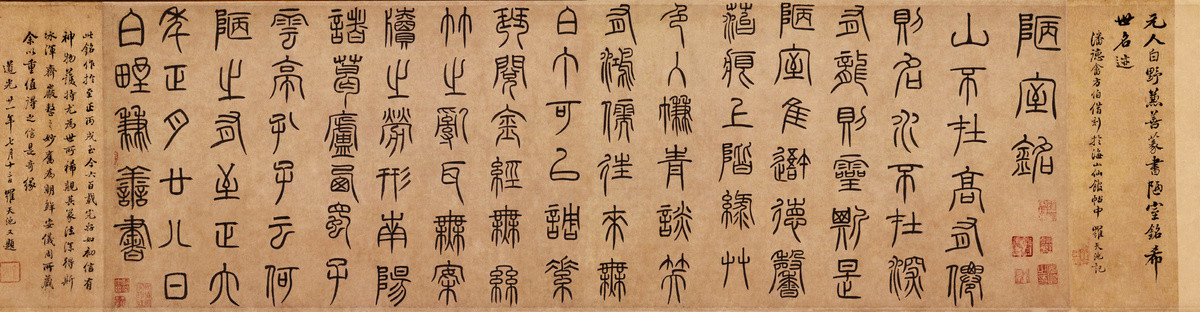 元人白野兼善篆書陋室銘希
世名迹
潘德畬方伯借刻於海山仙館帖中 羅天池記
陋室銘
山不在高有僊
則名水不在深
有龍則靈斯是
陋室惟吾德馨
苔痕上階綠艸
色入簾青談笑
有鴻儒往來無
白丁可以調素
琴閱金經無絲
竹之亂耳無案
牘之勞形南陽
諸葛廬西蜀子
雲亭孔子云何
陋之有至正六
年正月廿八日
白野兼善書
此銘作於至正丙戌至今六百載完好如初信有
神物護持尤為世所稀覯其篆法深得斯
冰渾齊嚴整之妙舊為朝鮮安儀周所藏
余以重值得之信是奇緣
道光廿一年七月十三日 羅天池又題